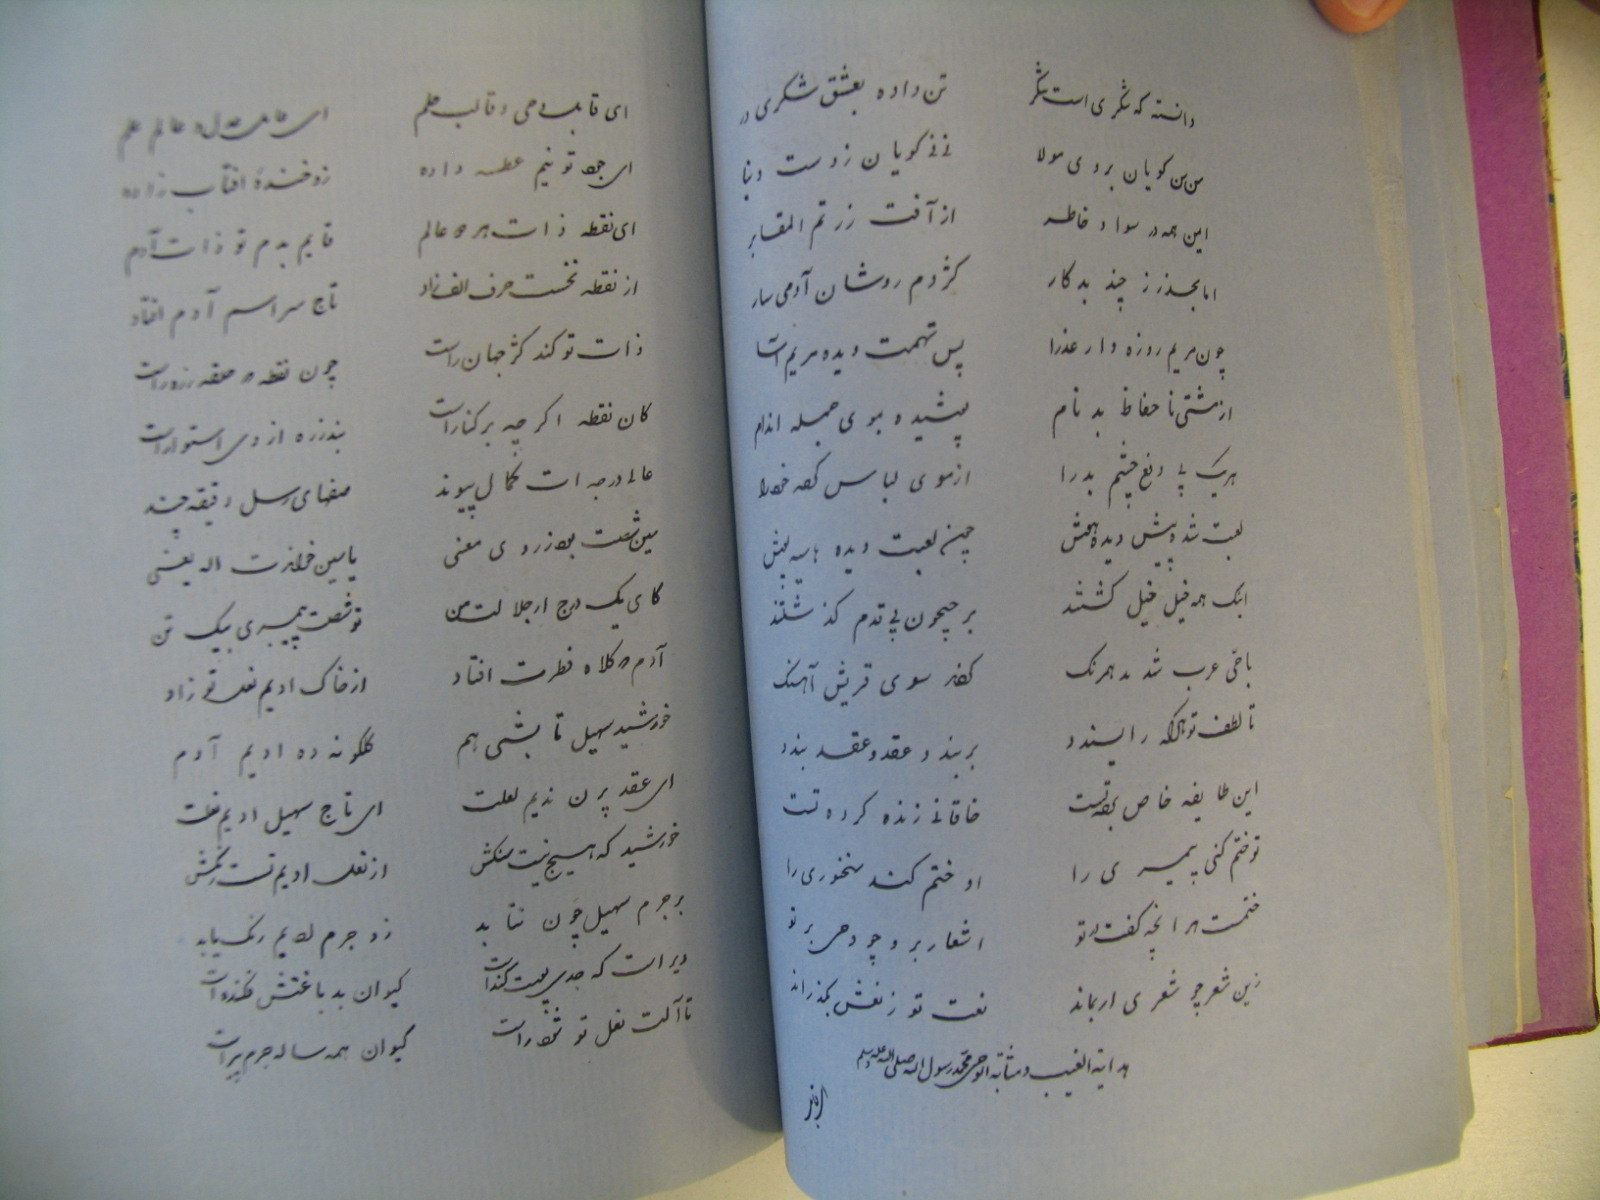 دانسته که شکری است شکر تن داده بعشق شکری در
من من کویان بروی مولا نی نی کویان ز دست دنیا
این همه در سواد خاطه از آفت زرتم المقابر
اما بحذر ز چند بدکار کژدم روشان آدمی سار
چون مریم روزه دار عذرا پس تهمت دیده مریم آسا
از مشتی نا حفاظ بدنام پوشیده بموی جمله اندام
هریک پی دفع چشم بد را از موی لباس کعبه
لعبت شده پیش دیده چین لعبت دیده
اینک همه خیل خیل کشتند بر جیحون بی قدم کذشتند
باقی عرب شده همرنک سوی قریش آهنک
تا لطف تو هر که را پسندد بربندد و عقد و عقد بندد
این طایفه خاص خاقانی زنده کرده تست
تو ختم کنی پیمبری را او ختم کند سخنوری را
ختمست هر آنچه کفت بر تو اشعار بر و چو وحی بر تو
زین شعر چو شعری ار بماند نعت تو ز نعش بکذراند
هدایة الغیب و مثابة الوحی محمد رسول الله صلی الله علیه وسلم
ای قابل وحی و قالب حلم ای عالم علم
ای تو نیم عطسه داده زو خندهٔ آفتاب زاده
ای نقطه ذات هر دو عالم قایم بدم تو ذات آدم
از نقطه نخست حرف الف زاد تاج سر اسم آدم افتاد
ذات تو کند کژ جهان راست چون نقطه
کان نقطه اکرچه بر کنارست بندزره از وی استوارست
عالی درجات کمال پیوند صفهای رسل دقیقه چند
سین شصت بود ز روی معنی یاسین خواندت اله یعنی
کای یک درج از جلالت من تو شصت پیمبری بیک تن
آدم کلاه فطرت افتاد از خاک ادیم نعل تو زاد
خورشید سهیل تابشی هم کلکونه ده ادیم آدم
ای عقد پرن ندیم لعلت ای تاج سهیل ادیم نعلت
خورشید که هیچ نیست سنکش از نعل ادیم تست رنکش
بر جرم سهیل چون نتابد زو جرم ادیم رنک یابد
دیر است که جدی پوست کندست کیوان بدباغتش فکندست
تا آلت نعل تو شود راست کیوان همه ساله جرم پیراست